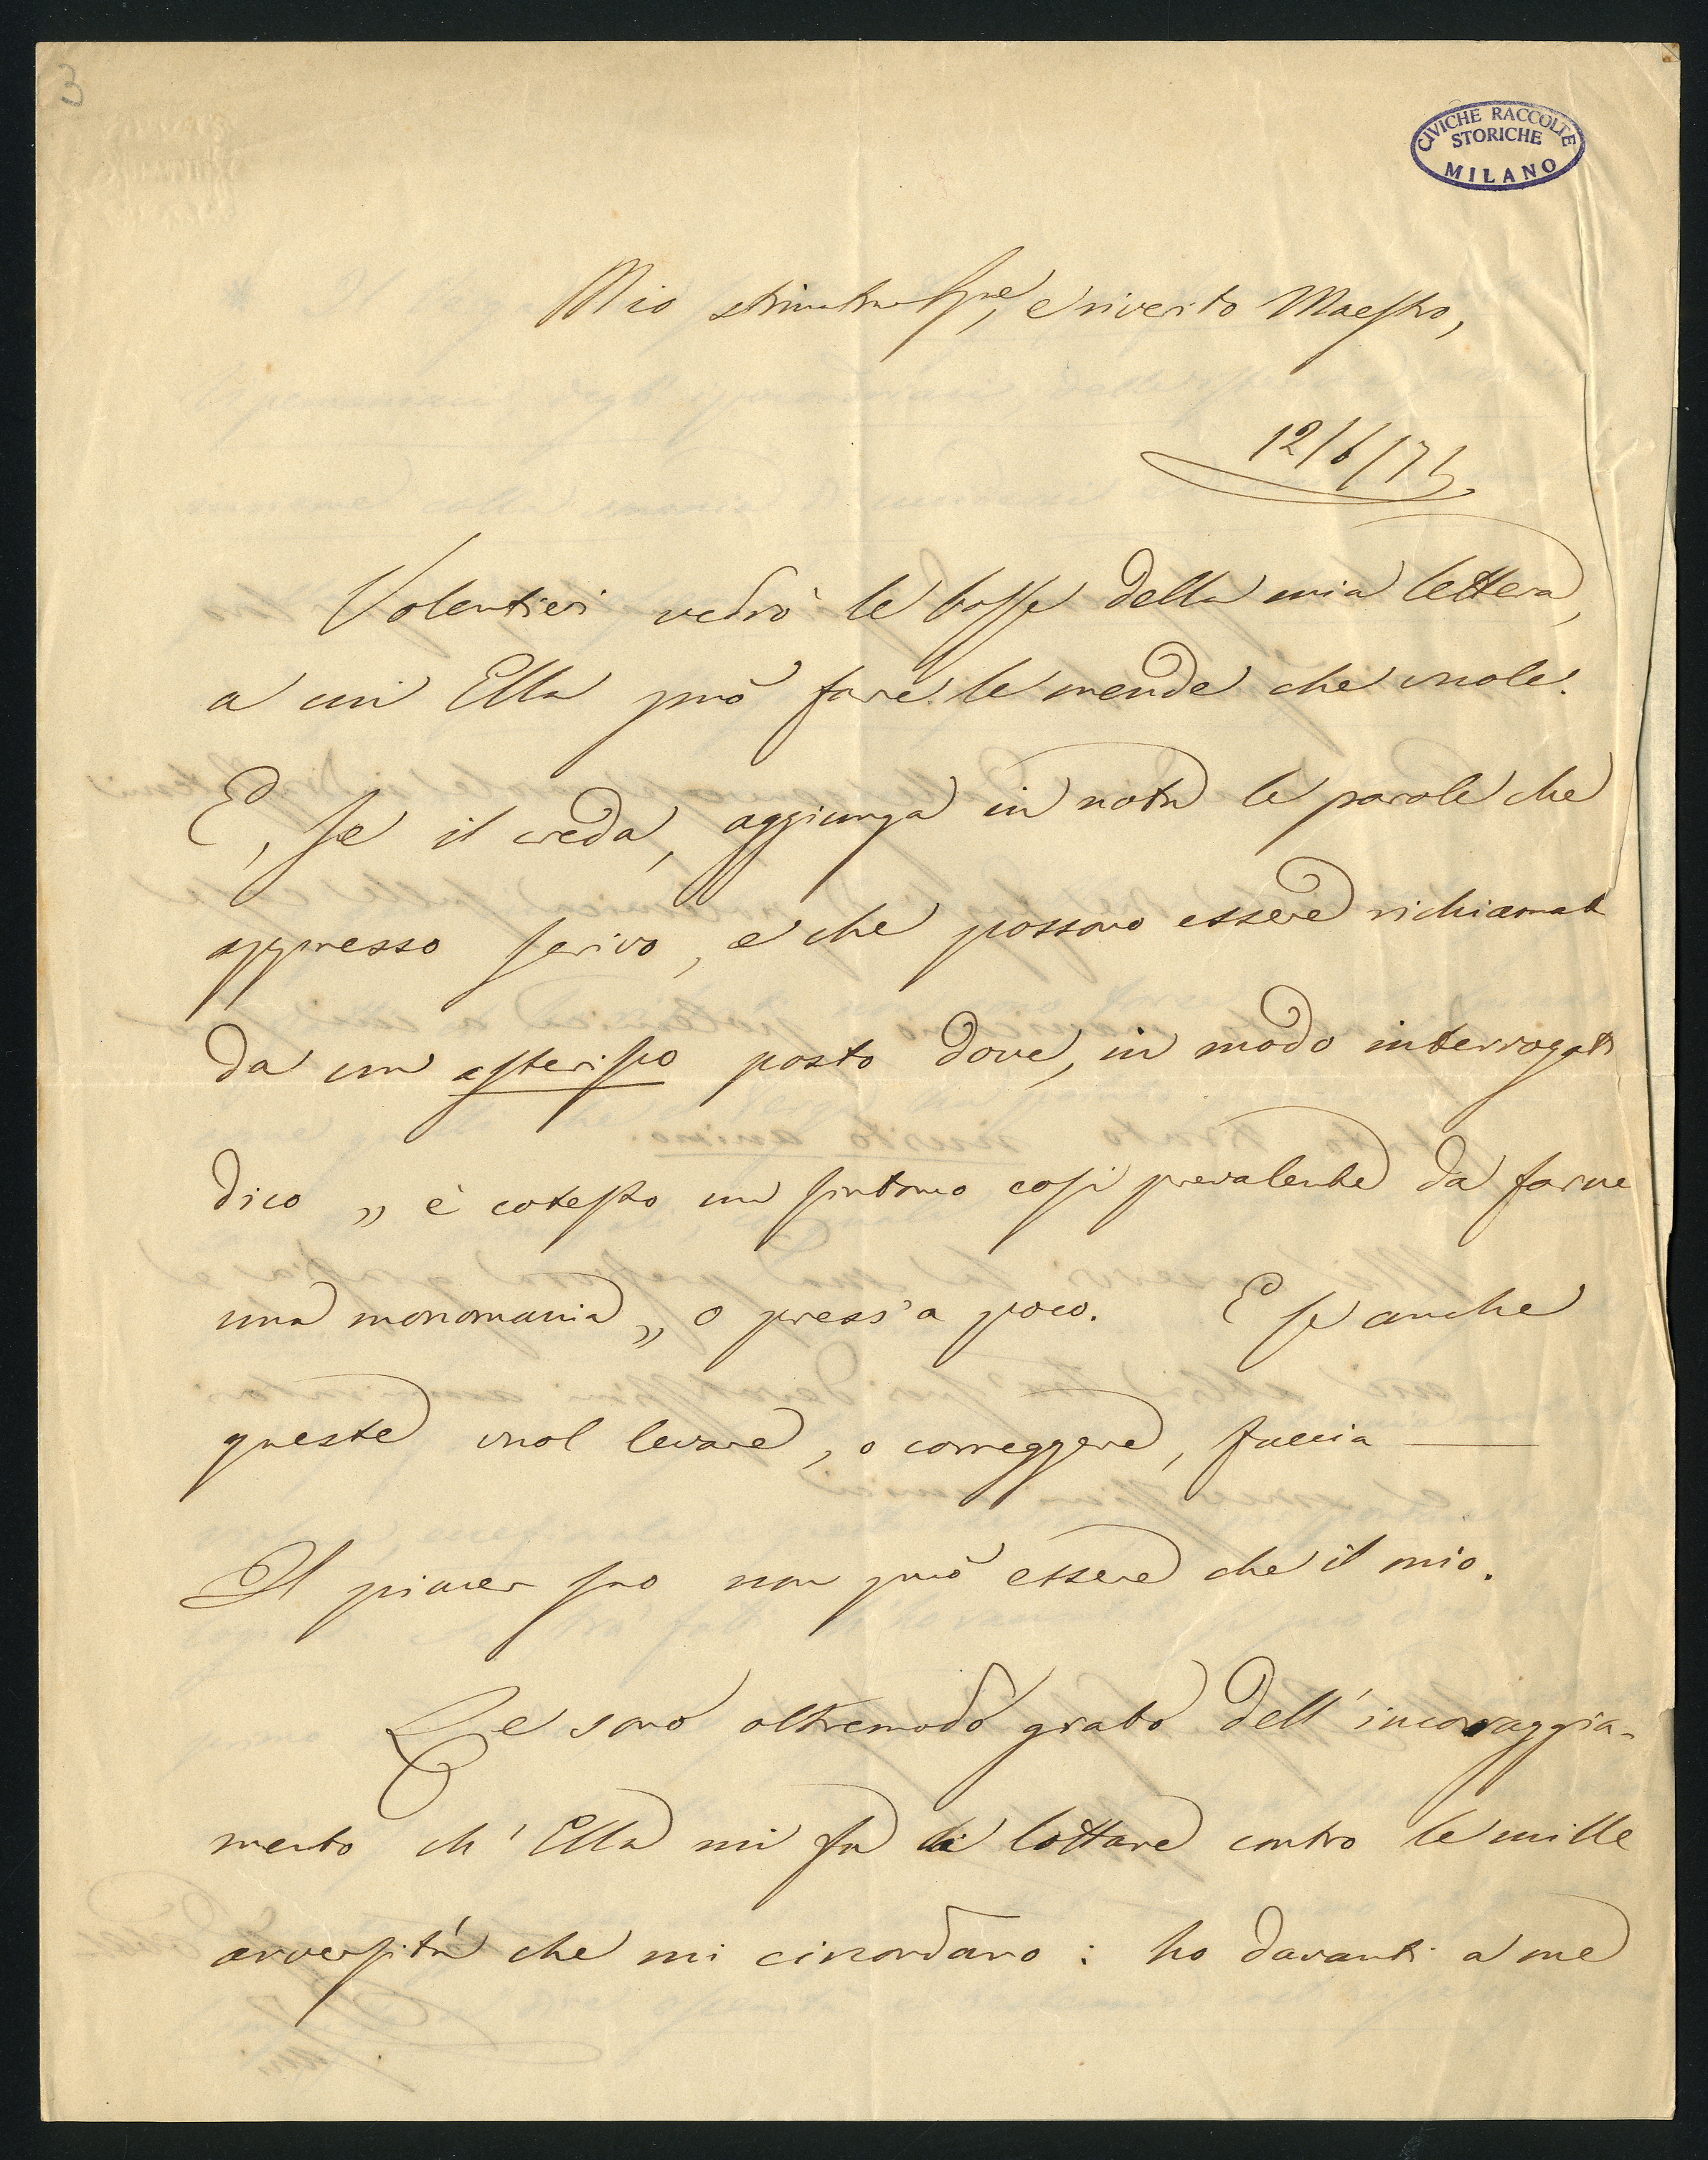 3
CIVICHE RACCOLTE
STORICHE
MILANO
Mio e riverito Maestro,
12/6/71
Volentieri vedrò le bosse della mia lettera,
a cui Ella può fare le mende che vuole.
E, se il creda, aggiunga in nota le parole che
appresso scrivo, e che possono essere richiamate
da un asterisco posto dove, in modo interrogat.
dico „ è cotesto un sintomo così prevalente da farne
una monomania „ o press'a poco. E se anche
queste vuol levare, o correggere, faccia —
Il piacer suo non può essere che il mio.
Le sono oltremodo grato dell'incoraggia-
mento ch'Ella mi fa di lottare contro le mille
avversità che mi circondano : ho davanti a me